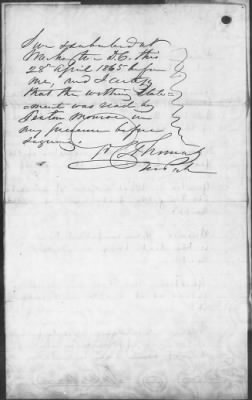 Sworn & subscribed at
Washington D.C. this
28th April 1865 before
me, and I certify
that the within State-
ment was read by
Seaton Monroe in
my presence before
signing.